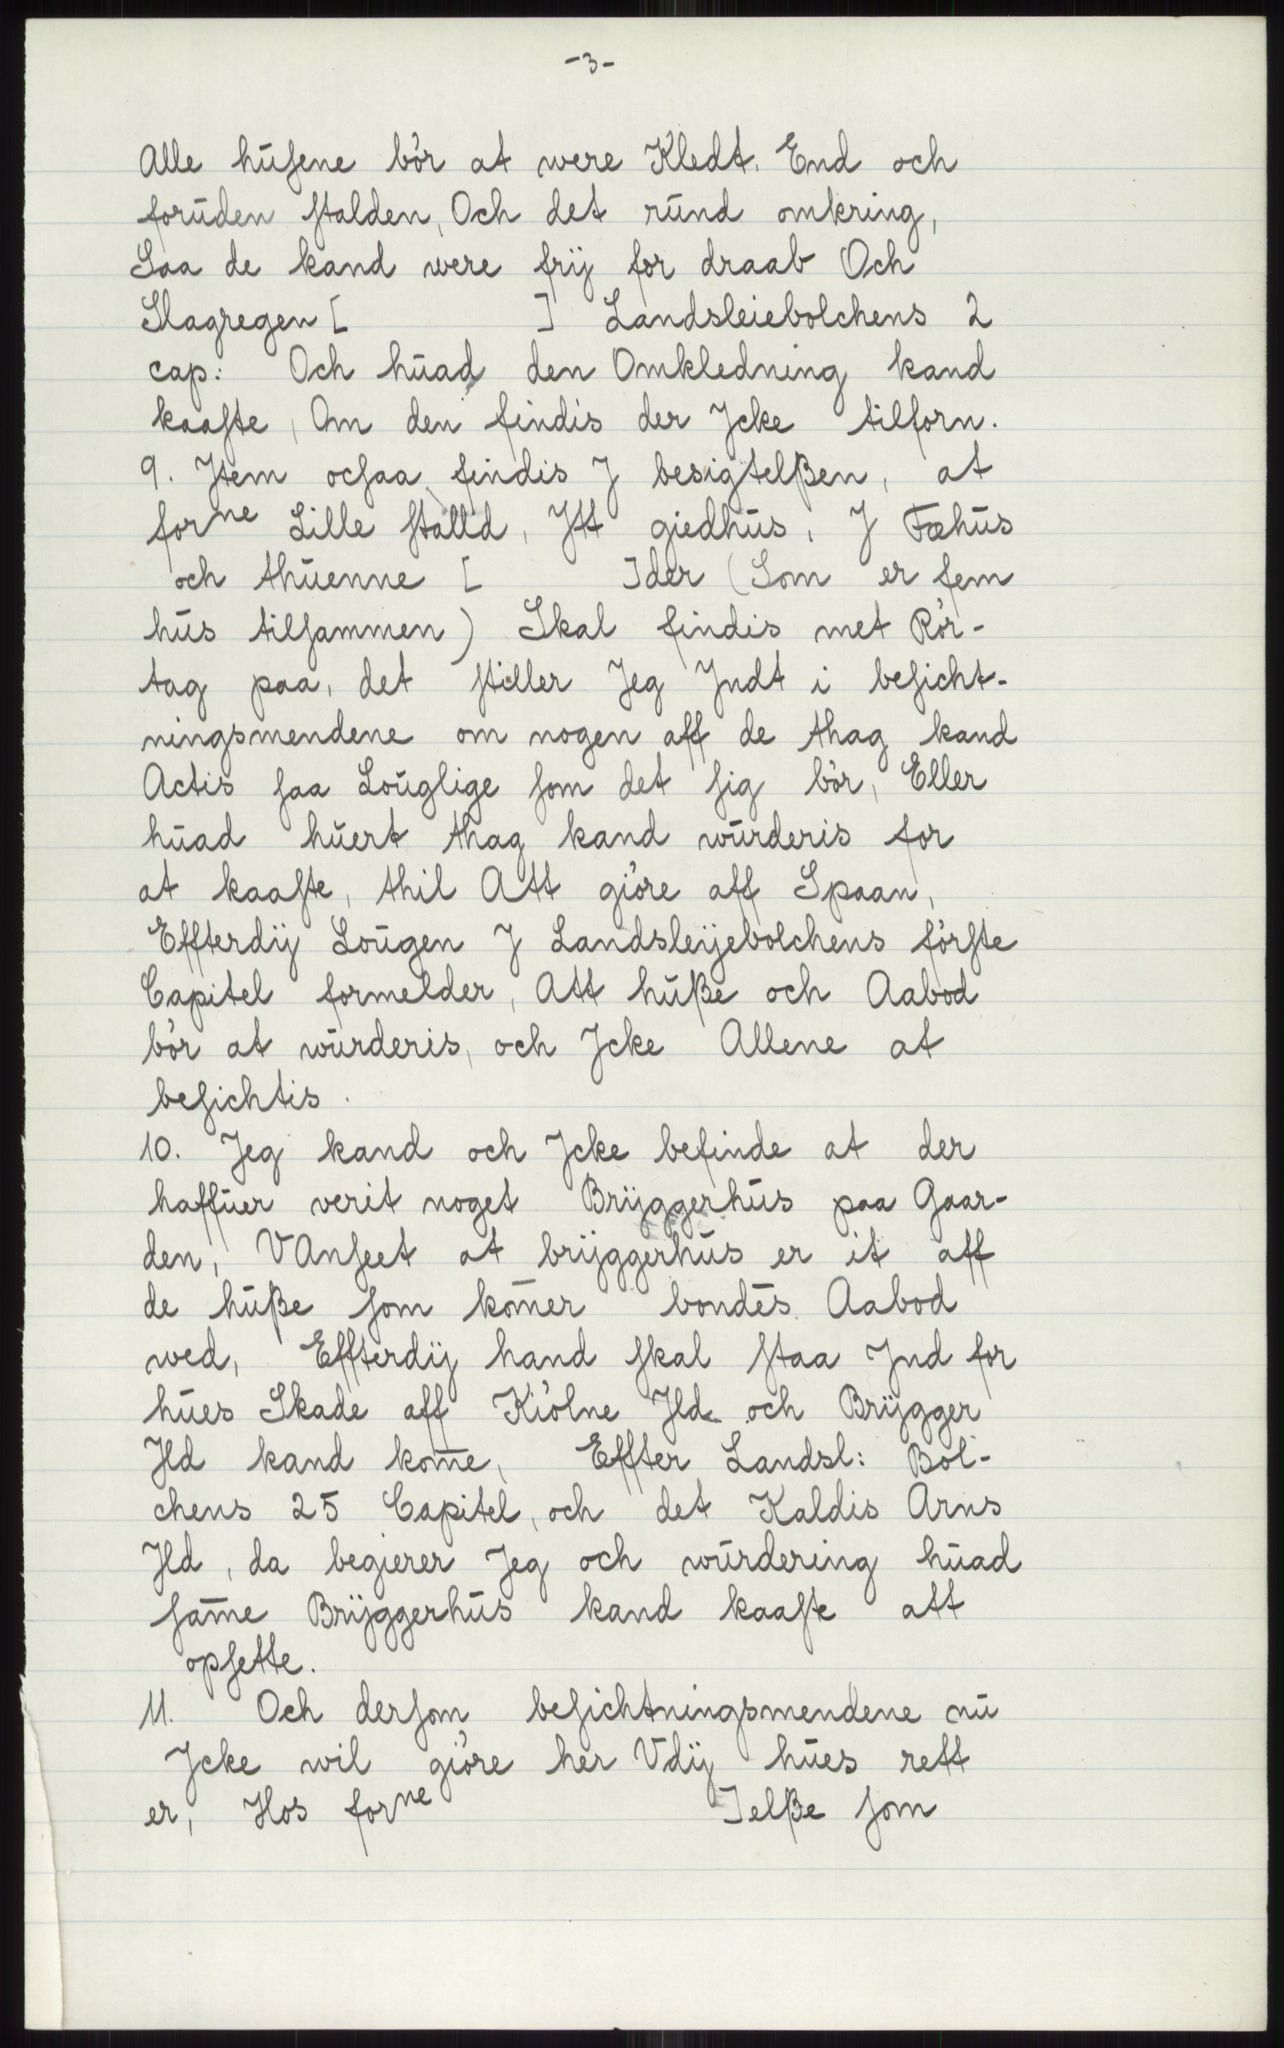 -3-
Alle hůſene bör at were Kledt. End och
forůden ſtalden, Och det růnd omkring,
Saa de kand were frij for draab Och
Slagregen [ ] Landsleiebolchens 2
cap: Och hůad den Omkledning kand
kaaſte, Om den findis der Jcke tilforn.
9. Jtem ocſaa findis J besigtelßen, at
forne Lille ſtalld, Jtt giedhůs, J Fæhůs
och thůenne [ ]der (Som er fem
hůs tilſammen) Skal findis met Rör-
tag paa, det ſtiller Jeg Jndt i beſicht-
ningsmendene om nogen aff de thag kand
Actis ſaa Loůglige ſom det ſig bör, Eller
hůad hůert thag kand wůrderis for
at kaaſte, thil Att giöre aff Spaan,
Effterdij Loůgen J Landsleijebolchens förſte
Capitel formelder, Att hůße och Aabod
bör at wůrderis, och Jcke Allene at
beſichtis.
10. Jeg kand och Jcke befinde at der
haffůer verit noget Brÿggerhůs paa Gaar-
den, VAnſeet at brijggerhůs er it aff
de hůße ſom kom̄er bondēs Aabod
wed, Effterdij hand ſkal ſtaa Jnd for
hůes Skade aff Kiölne Jld och Brÿgger
Jld kand kom̄e, Effter Landsl: Bol-
chens 25 Capitel, och det Kaldis Arns
Jld, da begierer Jeg och wůrdering hůad
ſam̄e Brÿggerhůs kand kaaſte att
opſette.
11. Och derſom beſichtningsmendene nů
Jcke wil giöre her Vdij hůes rett
er, Hos forne ]elße ſom